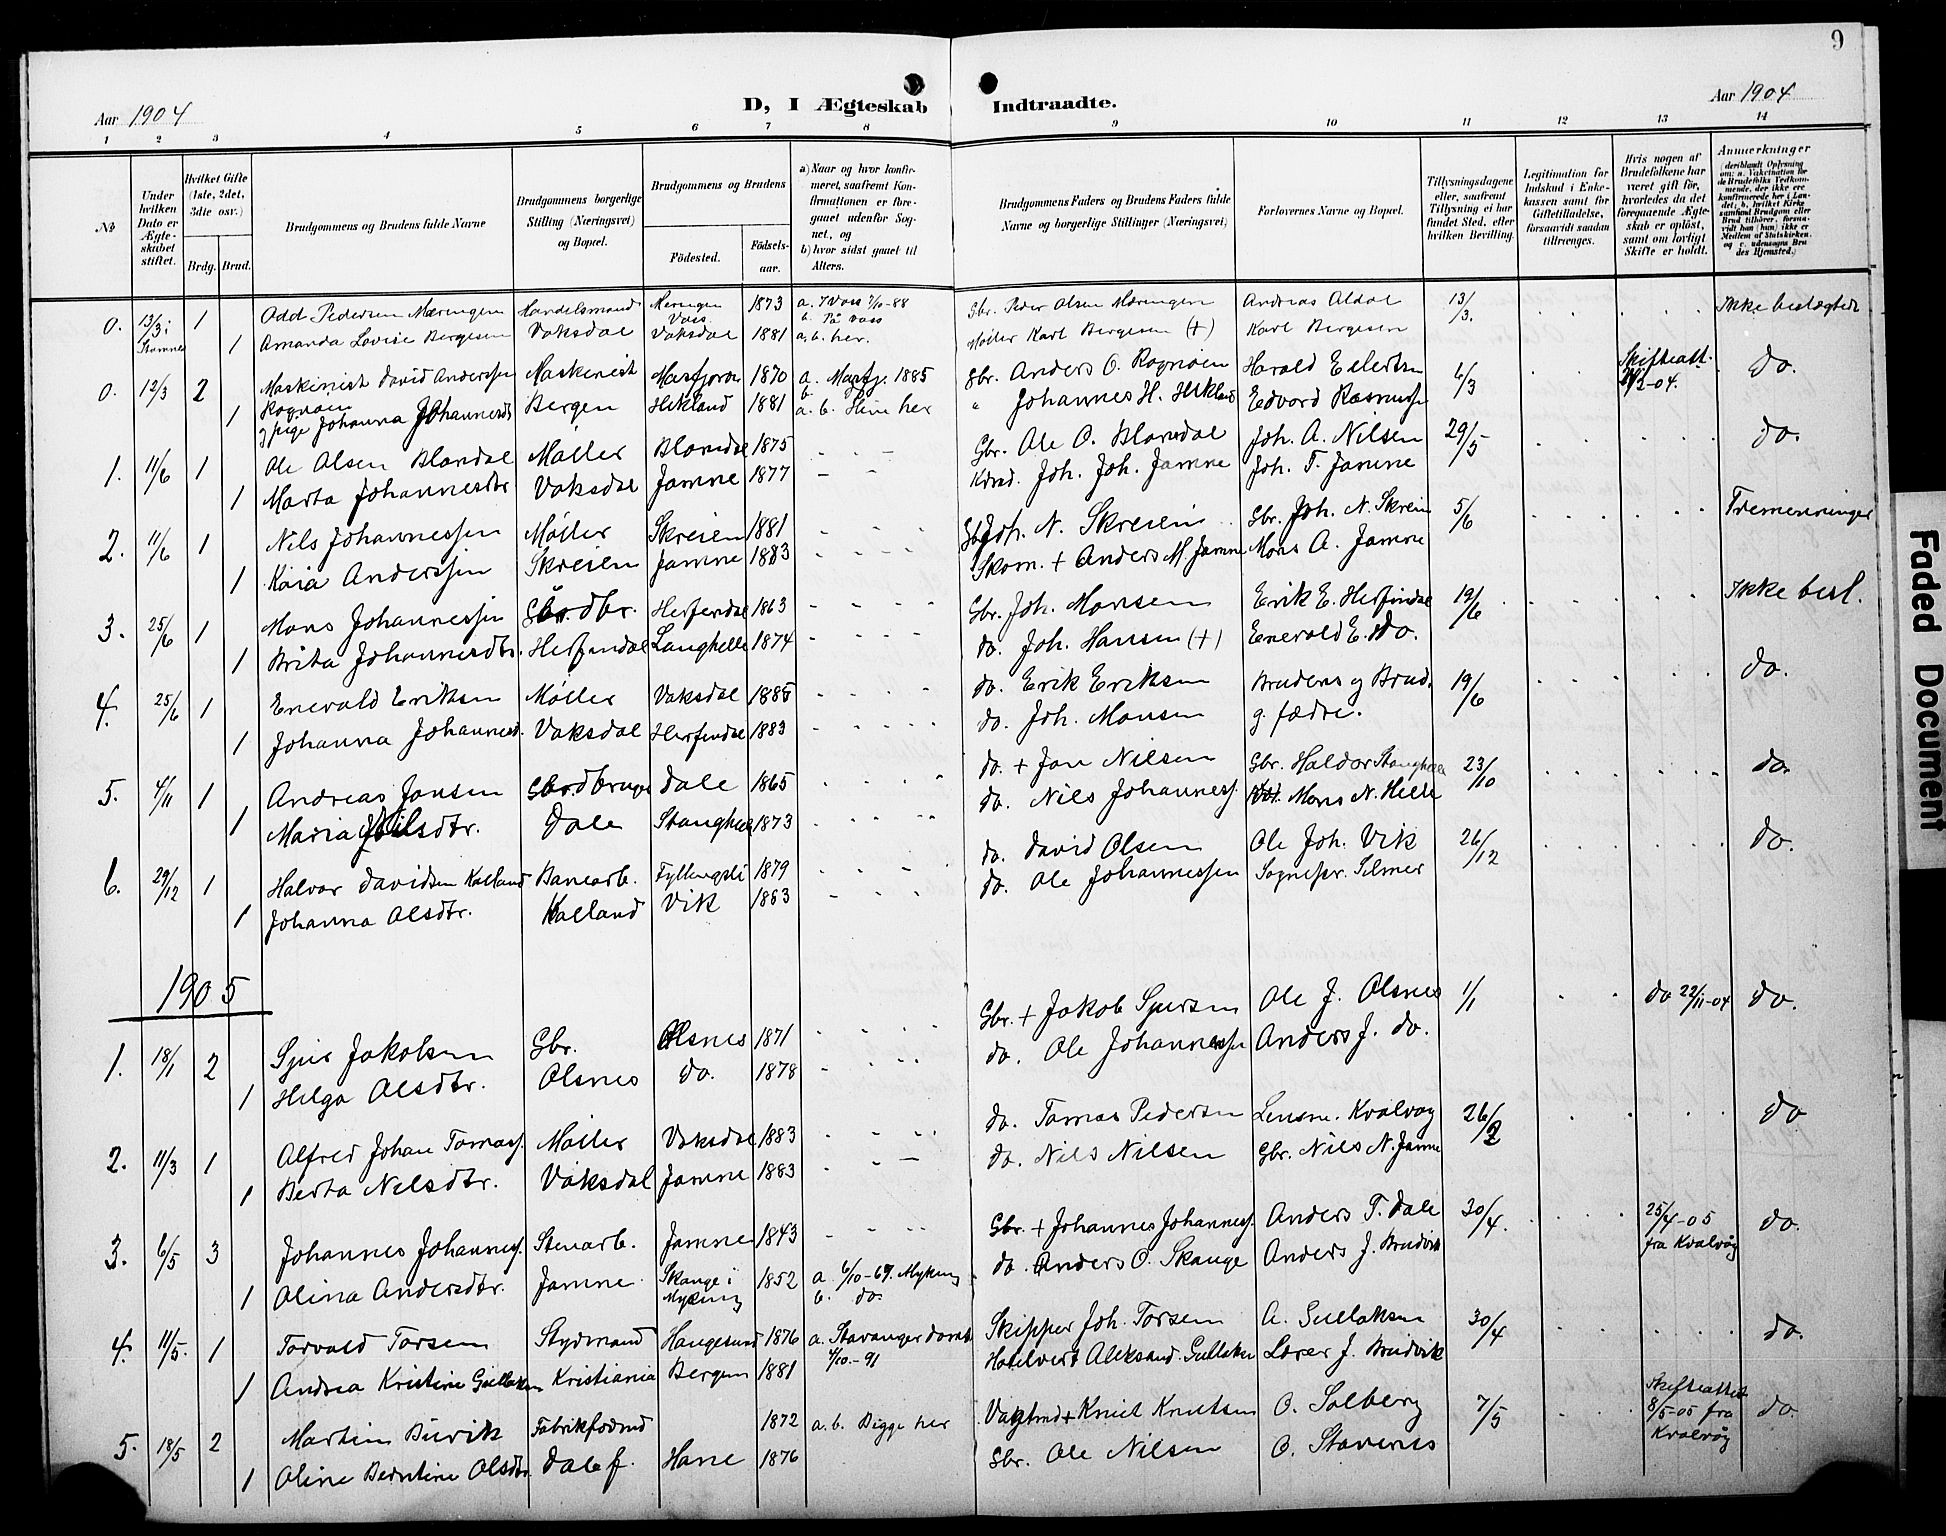 9
Aar 1904
D, I Ægteskab Indtraadte.
Aar 1904
1 2 3 4 5 6 7 8 9 10 11 12 13 14
No
Under hvilken Dato er Ægteskabet stiftet.
Hvilket Gifte (1ste, 2det, 3dte osv.)
Brdg. Brud.
Brudgommens og Brudens fulde Navne
Brudgommens borgerlige Stilling (Næringsvei) og Bopæl.
Brudgommens og Brudens
Födested.
Födselsaar.
a) Naar og hvor konfirmeret, saafremt Konfirmationen er foregaaet udenfor Sognet, og
b) hvor sidst gaaet til Alters.
Brudgommens Faders og Brudens Faders fulde Navne og borgerlige Stillinger (Næringsvei)
Forlovernes Navne og Bopæl.
Tillysningsdagene eller, saafremt Tillysning ei har fundet Sted, efter hvilken Bevilling.
Legitimation for Indskud i Enkekassen samt for Giftetilladelse, forsaavidt saadan tiltrænges.
Hvis nogen af Brudefolkene har været gift för, hvorledes da det foregaaende Ægteskab er oplöst, samt om lovligt Skifte er holdt.
Anmærkninger
(deriblandt Oplysning om: a. Vakcination for de Brudefolks Vedkommende, der ikke ere konfirmerede her i Landet; b. hvilket Kirkesamfund Brudgom eller Brud tilhörer, forsaavidt han (hun) ikke er Medlem af Statskirken, og c. udensogns Brudes Hjemsted.)
0. 13/3 i Stamnes 1 Odd Pedersen Mæringen Handelsmand Mæringen Voss 1873 a. i Voss 2/10-88 b. På Voss Gbr. Peder Olsen Mæringen Andreas Aldal 13/3. Ikke beslægtede
1 Amanda Lovise Bergesen Vaksdal Vaksdal 1881 a. b. her. Møller Karl Bergesen (+) Karl Bergesen
0. 12/3 2 Maskinist David Anderssen Rognøen Maskinist Masfjorden 1870 a. Masfj. 1885 Gbr. Anders O. Rognøen Harald Eilertsen 6/3 Skifteatt. 2-04. do.
1 og pige Johanna Johannesdtr Bergen Hekland 1881 a. b. her " Johannes H. Hekland Edvard Rasmussen
1. 11/6 1 Ole Olsen Blomdal Møller Blomdal 1875 Gbr. Ole O. Blomdal Joh. A. Nilsen 29/5 do.
1 Marta Johannesdtr Vaksdal Jamne 1877 Joh. Joh. Jamne Joh. T. Jamne
2. 11/6 1 Nils Johannessen Møller Skreien 1881 Gbr. Joh. N. Skreien Gbr. Joh. N. Skrein 5/6 Tremenninger
1 Kaia Anderssen Skreien Jamne 1883 Skom. + Anders M. Jamne Mons A. Jamne
3. 25/6 1 Mons Johannessen Gbr. Herfindal 1863 Gbr. Joh. Monsen Erik E. Herfindal 19/6 Ikke besl.
1 Brita Johannesdtr. Herfindal Langhelle 1874 do. Joh. Hansen (+) Enevald E. do.
4. 25/6 1 Enevald Eriksen Møller Vaksdal do. Erik Eriksen Brudens og Brud. 19/6 do.
1 Johanna Johannesd. Vaksdal Herfindal 1883 do. Joh. Monsen g. fædre.
5. 4/11 1 Andreas Jonsen Gbr. Dale 1865 do. + Jon Nilsen Gbr. Haldor Stanghelle 23/10 do.
1 Maria Nilsdtr. Dale Stanghelle 1873 do. Nils Johanness. Mons N. Helle
6. 29/12 1 Halvor Davidsen Kalland Banearb. Fyllingsli 1879 do. David Olsen Ole Joh. Vik 26/12 do.
1 Johanna Olsdtr. Kalland Vik 1883 do. Ole Johannessen Sognepr. Selmer
1905
1. 18/1 2 Sjur Jakobsen Gbr. Olsnes 1871 Gbr. + Jakob Sjursen Ole J. Olsnes 1/1 do 22/11-04 do.
1 Helga Olsdtr. Olsnes do. 1878 do. Ole Johannessen Anders J. do.
2. 11/3 1 Alfred Johan Tomass. Møller Vaksdal 1883 do. Tomas Pedersen Lensm. Kvalvåg 26/2 do
1 Berta Nilsdtr. Vaksdal Jamne 1883 do. Nils Nilsen Gbr. Nils N. Jamne
3. 6/5 3 Johannes Johanness. Stenarb. Jamne 1843 Gbr. + Johannes Johanness. Anders T. Dale 30/4. 25/4-05 fra Kvalvåg do.
1 Olina Andersdtr. Jamne Skauge i Myking 1852 a. 6/10-67. Myking b. do. do. Anders O. Skauge Anders J. Brudvik
4. 11/5. 1 Torvald Torsen Styrmand Haugesund 1876 a. Stavanger domk. 4/10-91 Skipper Joh. Torsen A. Gullaksen 30/4 do.
1 Andrea Kristine Gullaksen Kristiania Bergen 1881 Hotelvert Aleksand. Gullaksen Lærer J. Brudvik
5. 18/5 2 Martin Burvik Fabrikformd 1872 a. b. Begge her + Knut Knutsen O. Solberg 7/5 Skifteattest 8/5-05 fra Kvalvåg do.
1 Oline Berntine Olsdtr Dale f. Hane 1876 Gbr. Ole Nilsen O. Stavenes
Faded Document